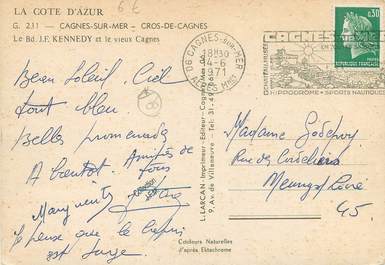 LA COTE D'AZUR
6 €
G. 231 - CAGNES-SUR-MER - CROS-DE-CAGNES
Le Bd. J.F. KENNEDY et le vieux Cagnes
Beau Soleil, Ciel
tout bleu.
Belles promenades
A bientôt. Amitiés de
tous
Marguerite
Je pense que le Capri
est sage.
Couleurs Naturelles
d'après Ektachrome
L. LARCAN-Imprimeur-Editeur-Cagnes
9, Av. de Villeneuve - Tel: 31.49
06 CAGNES-SUR-MER
18H30
4-6
1971
CAGNES-SUR-MER
HIPPODROME • SPORTS NAUTIQUES
0,30
REPUBLIQUE FRANÇAISE
Madame Godefroy
Rue des Cordeliers
Meung s/ Loire
45